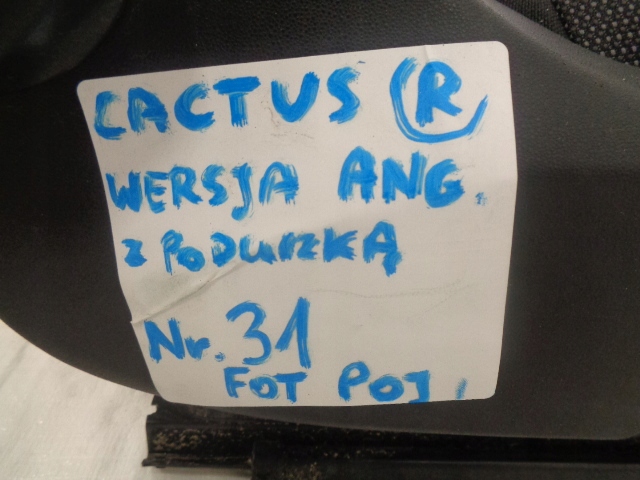 CACTUS R
WERSJA ANG.
z PODUSZKĄ
Nr. 31
FOT POJ.